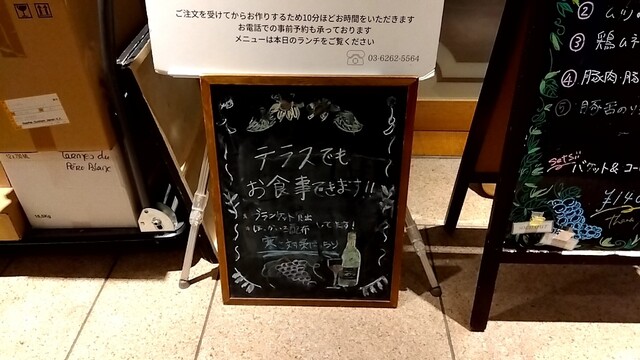 ご注文を受けてからお作りするため10分ほどお時間をいただきます
お電話での事前予約も承っております
メニューは本日のランチをご覧ください
03-6262-5564
テラスでも
お食事できます!!
ブランケット貸出
ほっかいろ配布 してます!
寒さ対策ばっちり
② ム
③ 鶏ムネ
④ 豚肉・豚
⑤ 豚舌の
Set
バゲット & コー
Larmes du
Père Blaize